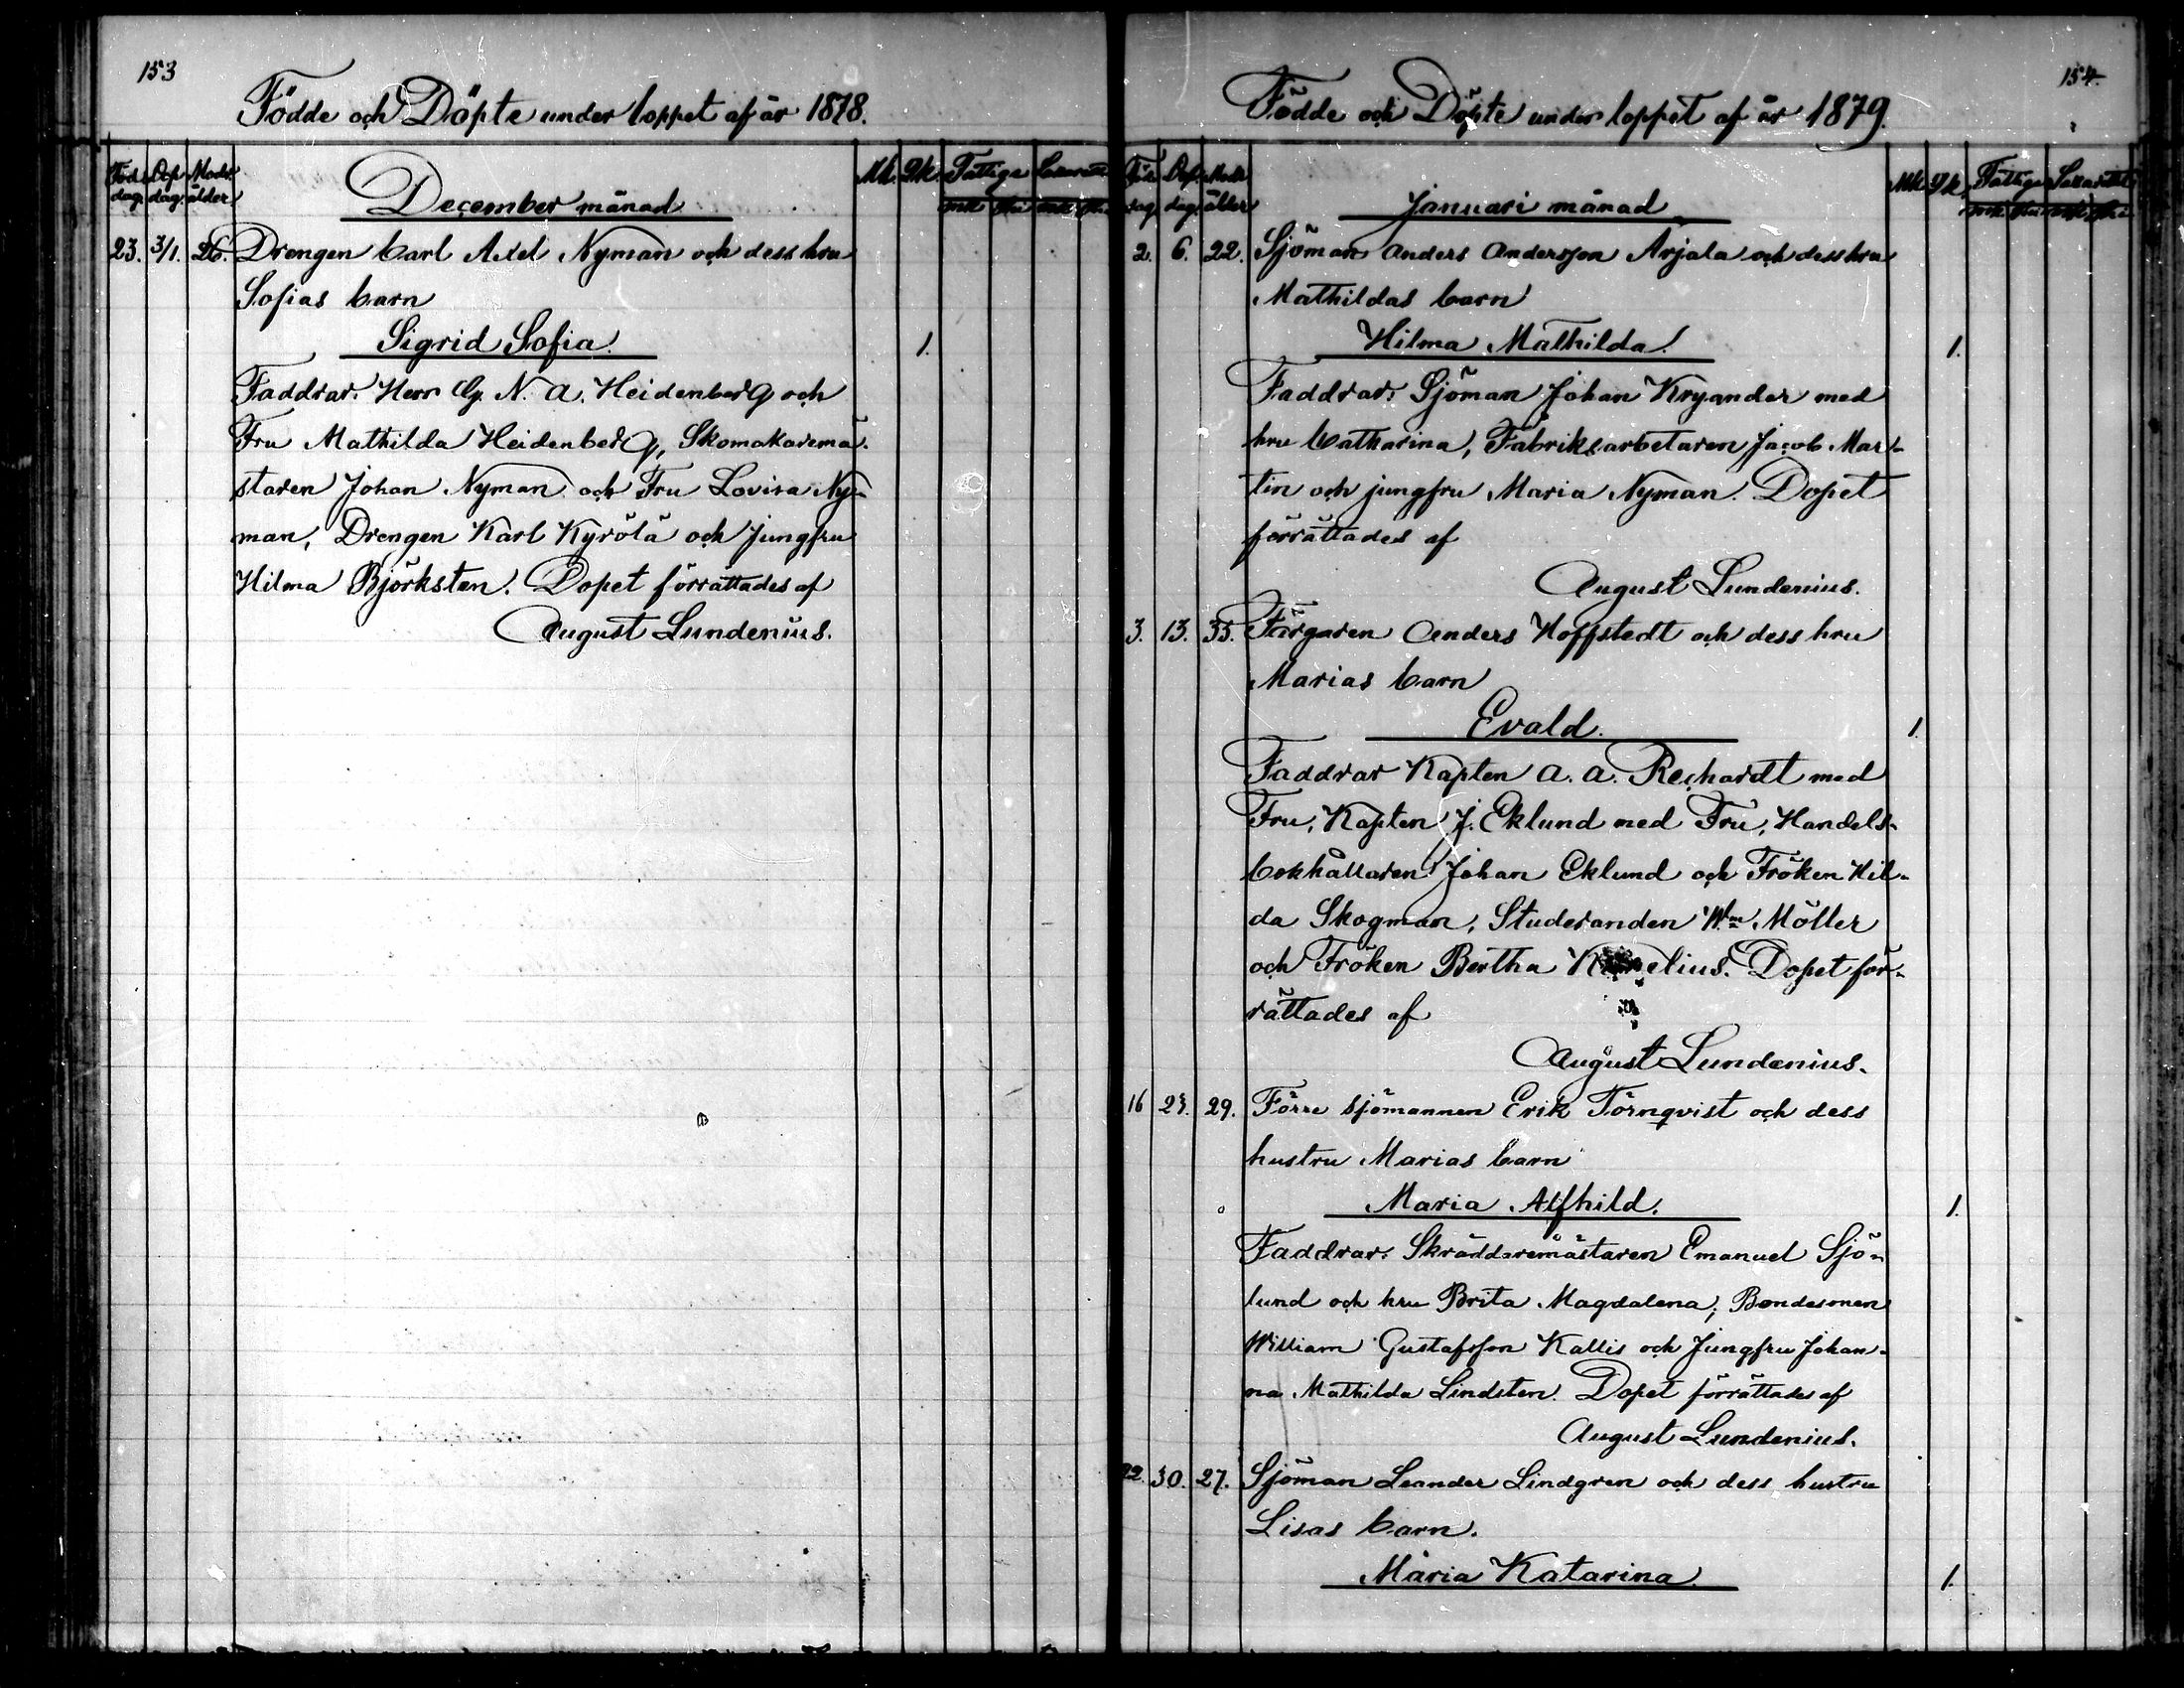 153
Födde och Döpte under loppet af år 1878.
Föds dag. Dop dag. Modr. ålder Mk. Qk Fattige Lazarett
December månad
23. 3/1. 26. Drengen Carl Axel Nyman och dess hru
Sofias barn
Sigrid Sofia. 1.
Faddrar: Herr G. N. A. Heidenberg och
Fru Mathilda Heidenberg, Skomakaremä-
staren Johan Nyman och Fru Lovisa Ny-
man, Drengen Karl Kyrölä och Jungfru
Hilma Björksten. Dopet förrättades af
August Lundenius.
154.
Födde och Döpte under loppet af år 1879.
Föd. dag. Dop. dag. Modr ålder Mk Qk. Fattige Lazarett
Januari månad
2. 6. 22. Sjöman Anders Andersson Arjala och dess hru
Mathildas barn
Hilma Mathilda. 1.
Faddrar: Sjöman Johan Kryander med
hru Catharina, Fabriksarbetaren Jacob Mar-
tin och jungfru Maria Nyman. Dopet
förrättades af
August Lundenius.
3. 13. 35. Färgaren Anders Hoffstedt och dess hru
Marias barn
Evald. 1.
Faddrar Kapten A. A. Rechardt med
Fru, Kapten J. Eklund med Fru, Handels-
bokhållaren Johan Eklund och Fröken Hil-
da Skogman, Studeranden Wm Möller
och Fröken Bertha Dopet för-
rättades af
August Lundenius.
16 23. 29. Förre sjömannen Erik Törnqvist och dess
hustru Marias barn
Maria Alfhild. 1.
Faddrar: Skräddaremästaren Emanuel Sjö-
lund och hru Brita Magdalena, Bondesonen
William Gustafsson Kallis och Jungfru Johan-
na Mathilda Lindsten. Dopet förrättades af
August Lundenius.
22. 30. 27. Sjöman Leander Lindgren och dess hustru
Lisas barn.
Maria Katarina. 1.